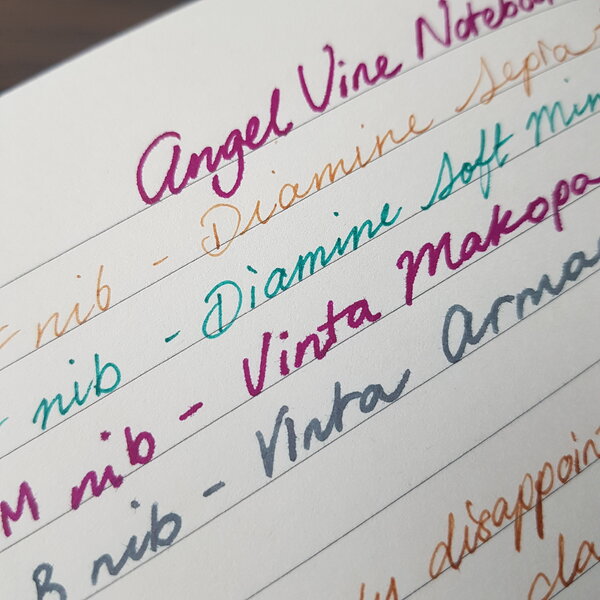 Angel Vine Notebook
nib - Diamine Sepia
nib - Diamine Soft Min
M nib - Vinta Makopa
B nib - Vinta Arma
disappoin
da